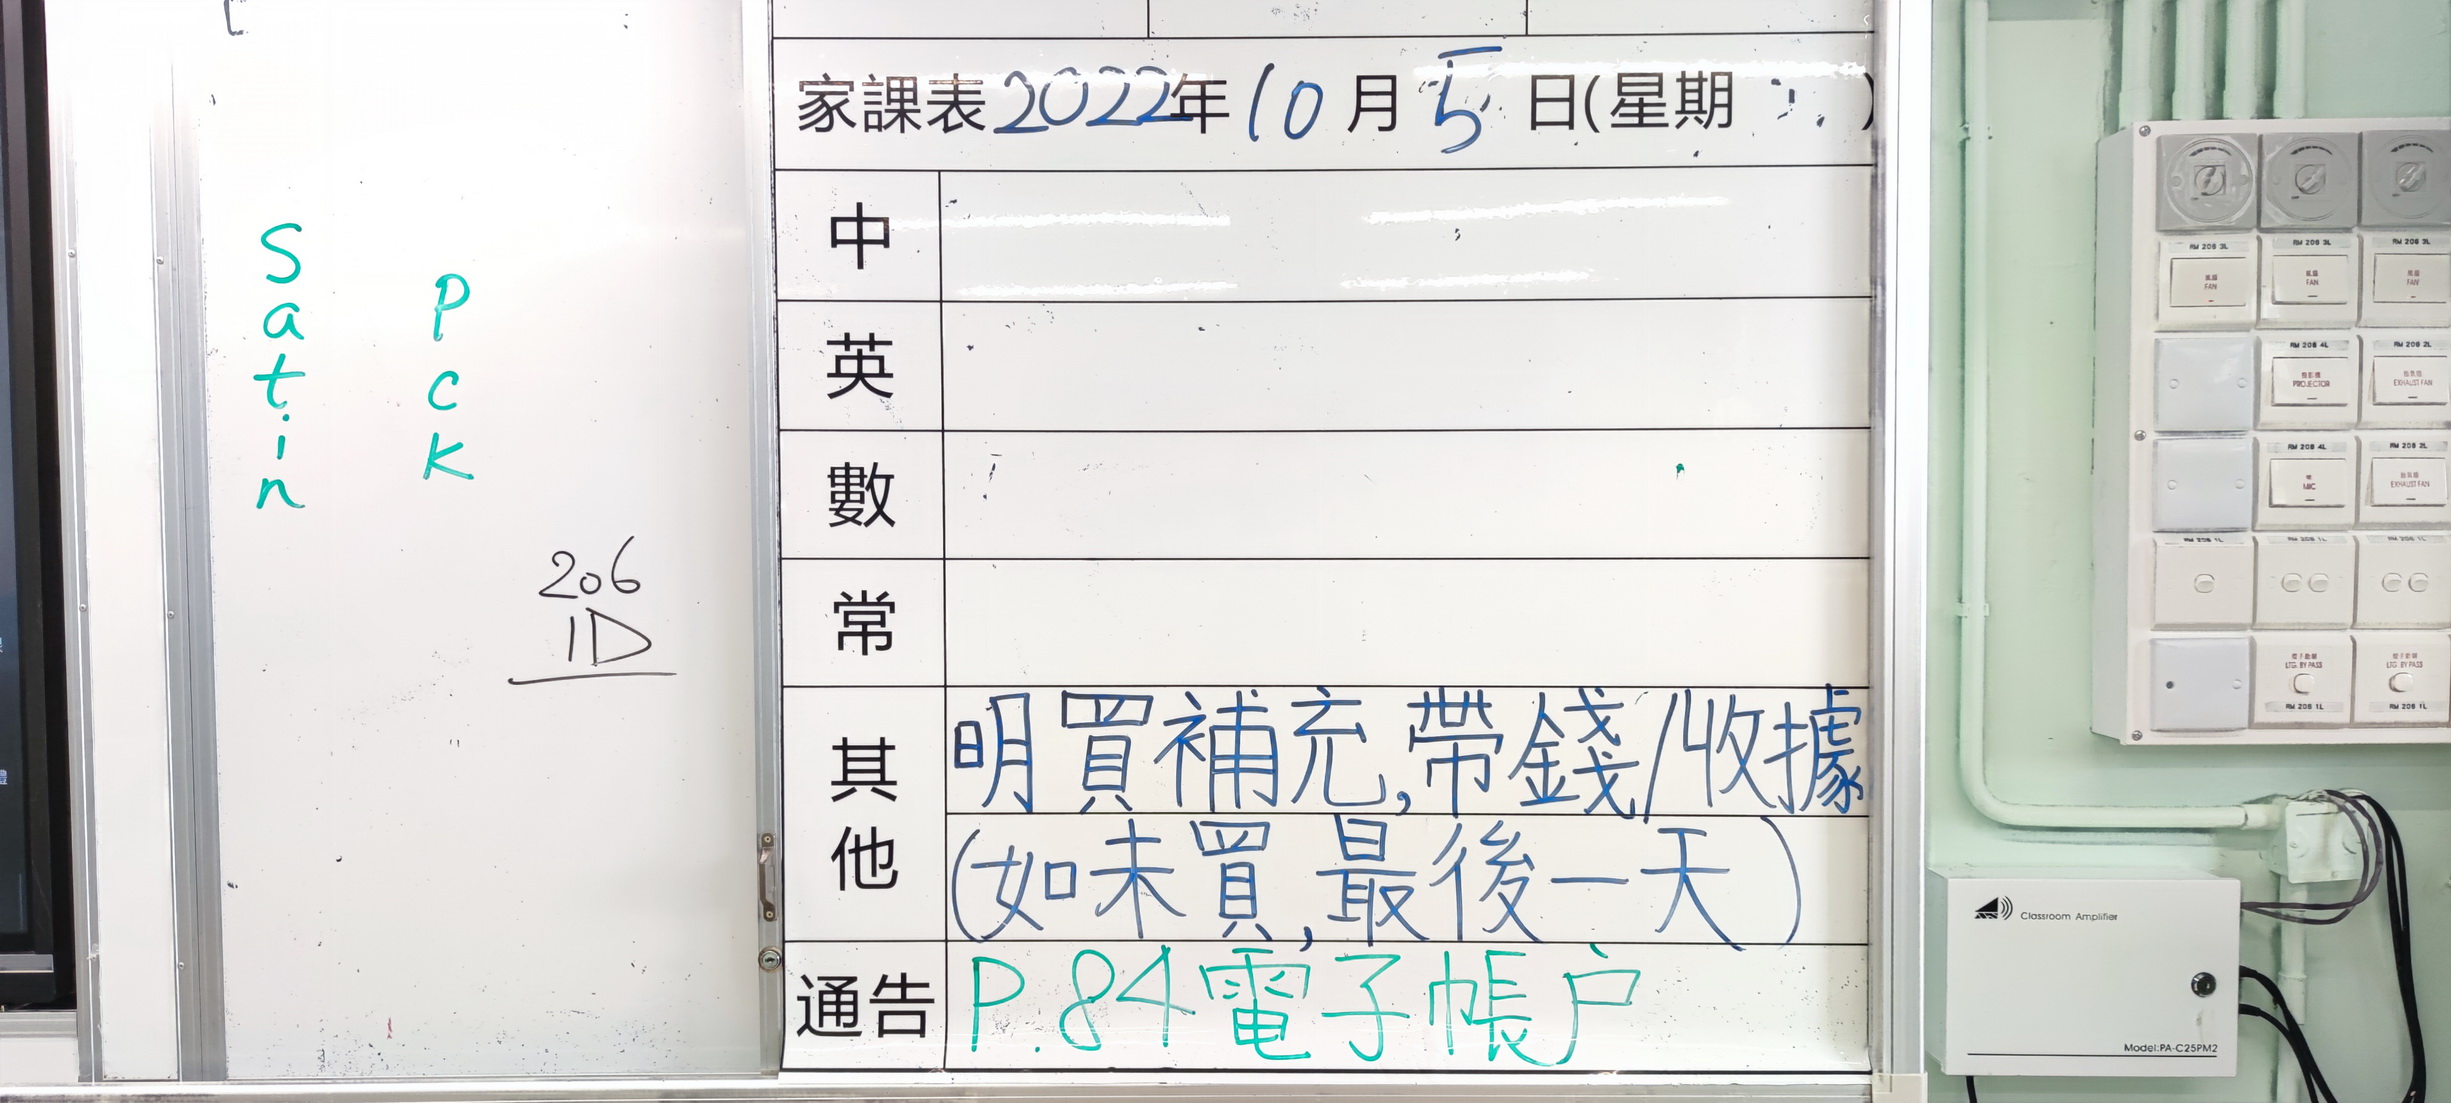 S
a
t
i
n
P
c
K
206
1D
家課表2022年10月5日(星期 )
中
英
數
常
其他
明買補充,帶錢/收據
(如未買,最後一天)
通告 P.84電子帳户
RM 206 3L RM 206 3L RM 206 3L
風扇 FAN 風扇 FAN 風扇 FAN
RM 206 4L RM 206 2L
投影機 PROJECTOR 抽氣扇 EXHAUST FAN
RM 206 4L RM 206 2L
咪 MIC 抽氣扇 EXHAUST FAN
RM 206 1L RM 206 1L RM 206 1L
LTG. BY PASS LTG. BY PASS
RM 206 1L RM 206 1L
Classroom Amplifier
Model:PA-C25PM2